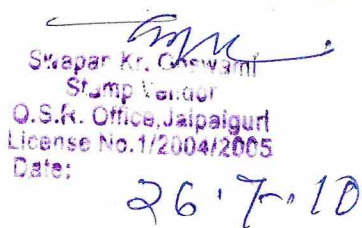 Swapan Kr. Goswami
Stamp Vendor
D.S.R. Office, Jalpaiguri
License No.1/2004/2005
Date:
26.7.10